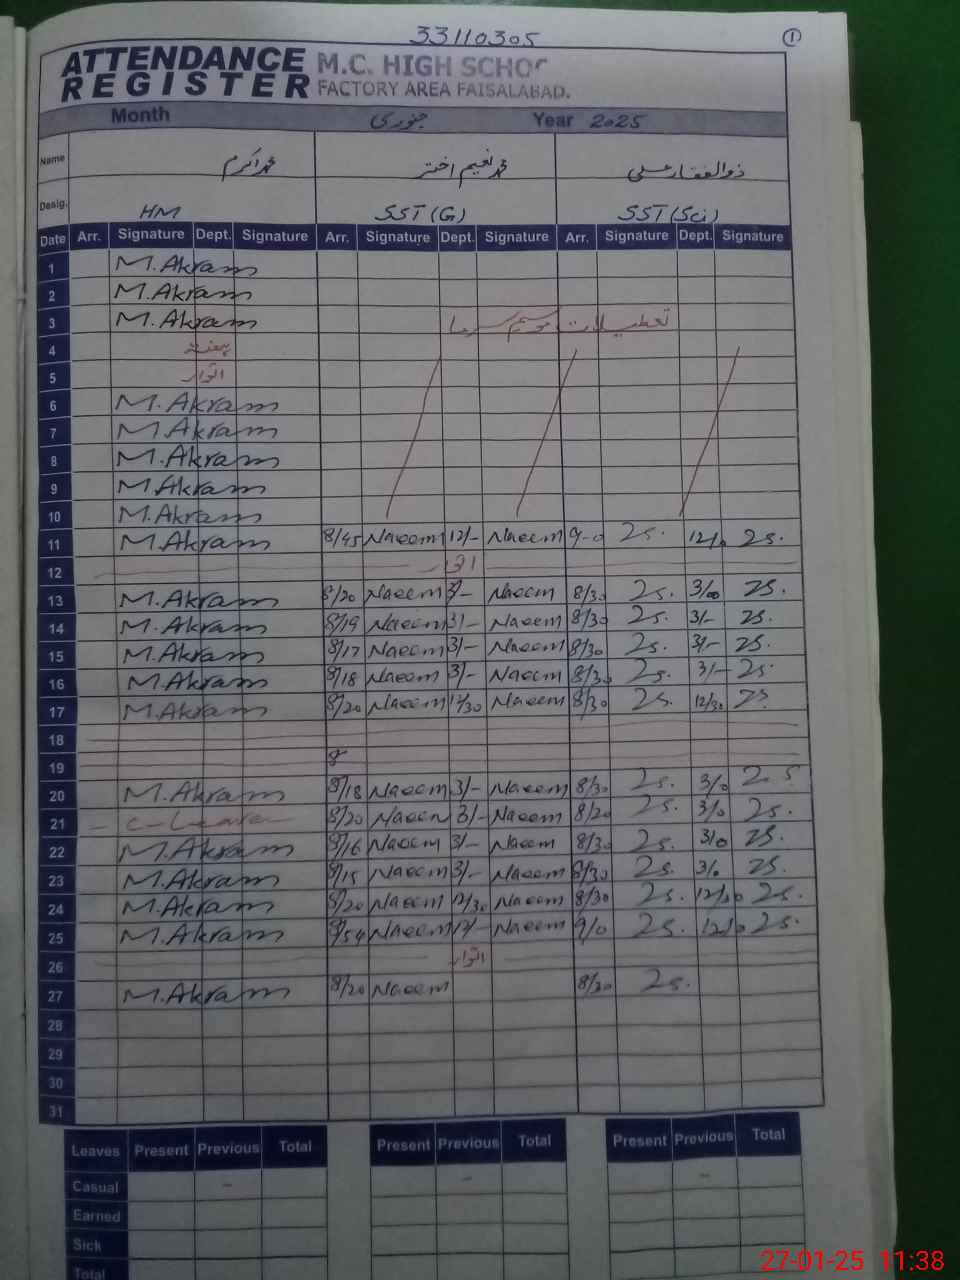 33110305
①
ATTENDANCE REGISTER M.C. HIGH SCHOOL
FACTORY AREA FAISALABAD.
Month جنوری Year 2025
Name محمد اکرم محمد نعیم اختر ذوالفقار علی
Desig. HM SST(G) SST(Sci)
Date Arr. Signature Dept. Signature Arr. Signature Dept. Signature Arr. Signature Dept. Signature
1 M.Akram
2 M.Akram
3 M.Akram تعطیلات موسم سرما
4 ہفتہ
5 اتوار
6 M.Akram
7 M.Akram
8 M.Akram
9 M.Akram
10 M.Akram
11 M.Akram 8/45 Naeem 12/- Naeem 9-0 2s. 12/0 2s.
12 اتوار
13 M.Akram 8/20 Naeem 3/- Naeem 8/30 2s. 3/00 2s.
14 M.Akram 8/19 Naeem 3/- Naeem 8/30 2s. 3/- 2s.
15 M.Akram 8/17 Naeem 3/- Naeem 8/30 2s. 3/- 2s.
16 M.Akram 8/18 Naeem 3/- Naeem 8/30 2s. 3/- 2s
17 M.Akram 8/20 Naeem 12/30 Naeem 8/30 2s. 12/30 2s
18
19 8
20 M.Akram 8/18 Naeem 3/- Naeem 8/30 2s. 3/0 2s
21 C-Leave 8/20 Naeem 3/- Naeem 8/20 2s. 3/0 2s.
22 M.Akram 8/16 Naeem 3/- Naeem 8/30 2s. 3/0 2s.
23 M.Akram 8/15 Naeem 3/- Naeem 8/30 2s. 3/0 2s.
24 M.Akram 8/20 Naeem 12/30 Naeem 8/30 2s. 12/30 2s.
25 M.Akram 8/54 Naeem 12/- Naeem 9/0 2s. 12/0 2s.
26 اتوار
27 M.Akram 8/20 Naeem 8/30 2s.
28
29
30
31
Leaves Present Previous Total Present Previous Total Present Previous Total
Casual - - -
Earned
Sick
Total
27-01-25 11:38